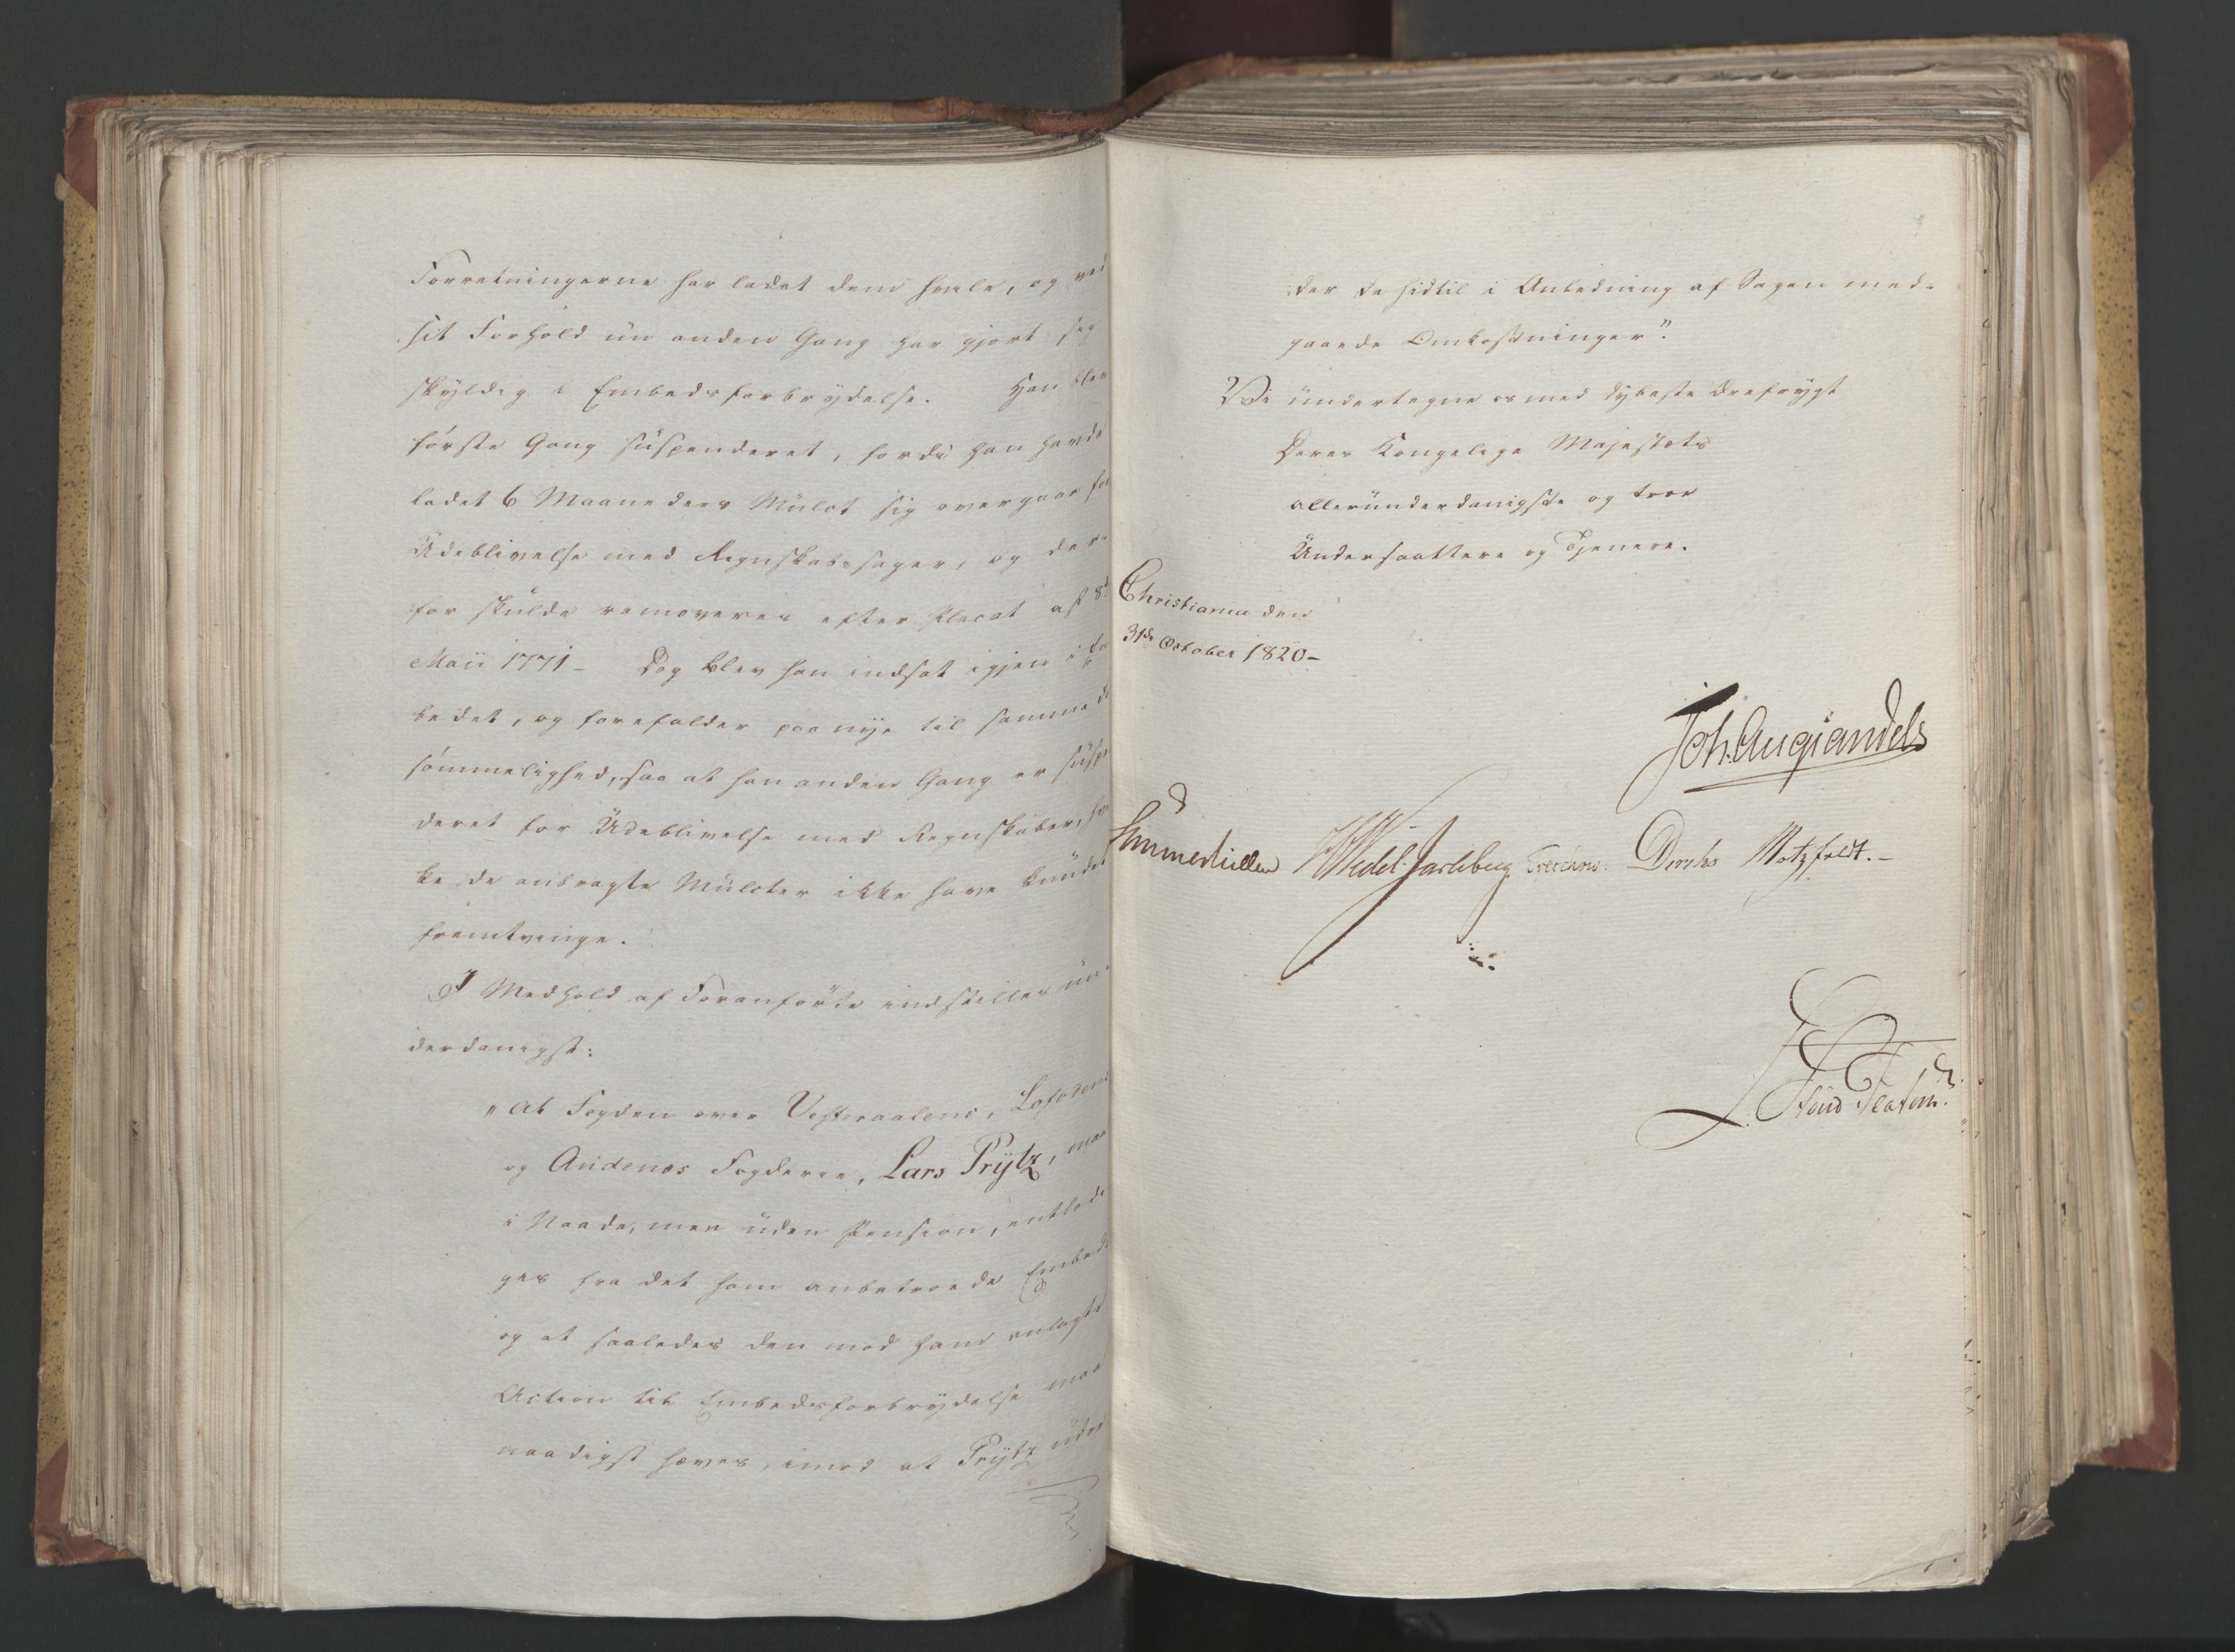 Forretningerne har ladet dem hvile, og ved
sit Forhold un anden Gang har gjort sig
skyldig i Embedsforbrydelse. Han blev
første Gang suspenderet, fordi han havde
ladet 6 Maaneders Mulct sig overgaae for
Udeblivelse med Regnskabssager, og der-
for skulde removeres efter Placat af 8d
Maii 1771 - Dog blev han indsat igjen i Em
bedet, og forefalder paa nye til samme
sømmelighed, saa at han anden Gang er suspen
deret for Udeblivelse med Regnskaber, hvil
ke de anbragte Mulcter ikke have kundet
fremtvinge.
I Medhold af Foranførte indstilles un-
derdanigst:
"At Fogden over Vesteraalens, Lofodens
og Andenæs Fogderie, Lars Prÿtz, maa
i Naade, men uden Pension, entledi
ges fra det ham anbetroede Embede
og at saaledes den mod ham anlagte
Action til Embedsforbrydelse maa
naadigst hæves, imod at Prÿtz udre
der de hidtil i Anledning af Sagen med-
gaaede Omkostninger".
Vi undertegne os med dybeste Ærefrygt
Deres Kongelige Majestæts
allerunderdanigste og troe
Undersaattere og Tjenere.
Christiania den
31de October 1820-
Joh. Aug Sandels
Sommerhielm HWedel-Jarlsberg Treschow. Diriks Motzfeldt.-